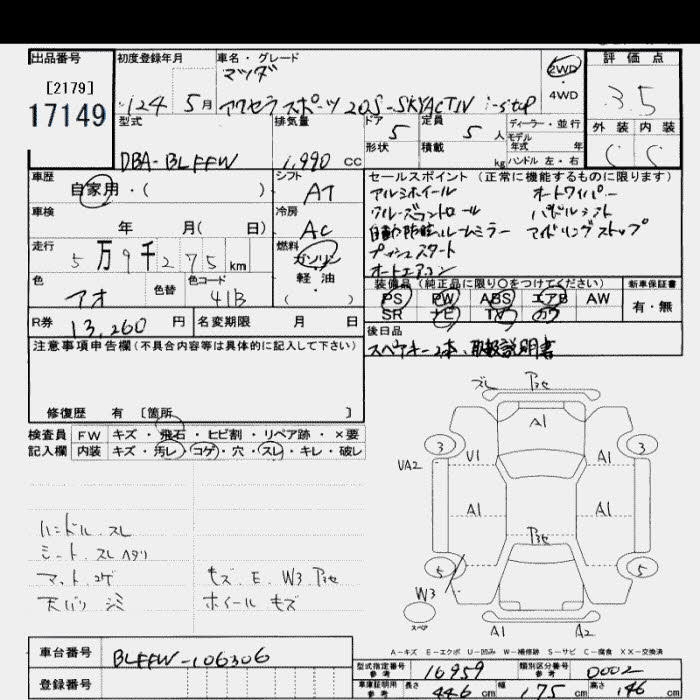 出品番号
[2179]
17149
初度登録年月
124 5月
車名・グレード
マツダ
アクセラスポーツ 20S-SKYACTIV i-stop
2WD
4WD
評価点
3.5
外装 内装
C C
型式
DBA-BLFFW
排気量
1,990 cc
ドア
5
定員
5 人
形状
積載
kg
ディーラー・並行
モデル
年式 年
ハンドル 左・右
車歴
自家用・( )
車検
年 月( 日)
走行
5万9千275 km
色
アオ
色替
色コード
41B
シフト
AT
冷房
AC
燃料
ガソリン
軽油
( )
セールスポイント (正常に機能するものに限ります)
アルミホイール オートワイパー
クルーズコントロール パドルシフト
自動防眩ルームミラー アイドリングストップ
プッシュスタート
オートエアコン
装備品(純正品に限り○をつけてください)
PS PW ABS エアB AW
SR ナビ TV カワ
新車保証書
有・無
R券
13,260 円
名変期限 月 日
後日品
スペアキー2本、取扱説明書
注意事項申告欄(不具合内容等は具体的に記入して下さい)
修復歴 有 [箇所 ]
検査員
記入欄
FW キズ・飛石・ヒビ割・リペア跡・×要
内装 キズ・汚レ・コゲ・穴・スレ・キレ・破レ
ハンドル スレ
シート スレ ヘタリ
マット コゲ
天バリ シミ
キズ. E. W3 アセ
ホイール キズ
スレ アセ
A1
3 3
UA2 U1 A1
A1 A1
アセ
5 5
W3
スペア
A1 A2
A-キズ E-エクボ U-凹み W-補修跡 S-サビ C-腐食 XX-交換済
車台番号
BLFFW-106306
登録番号
型式指定番号
参考
16959
類別区分番号
参考
0002
車庫証明用
参考
長さ 446 cm 幅 175 cm 高さ 146 cm